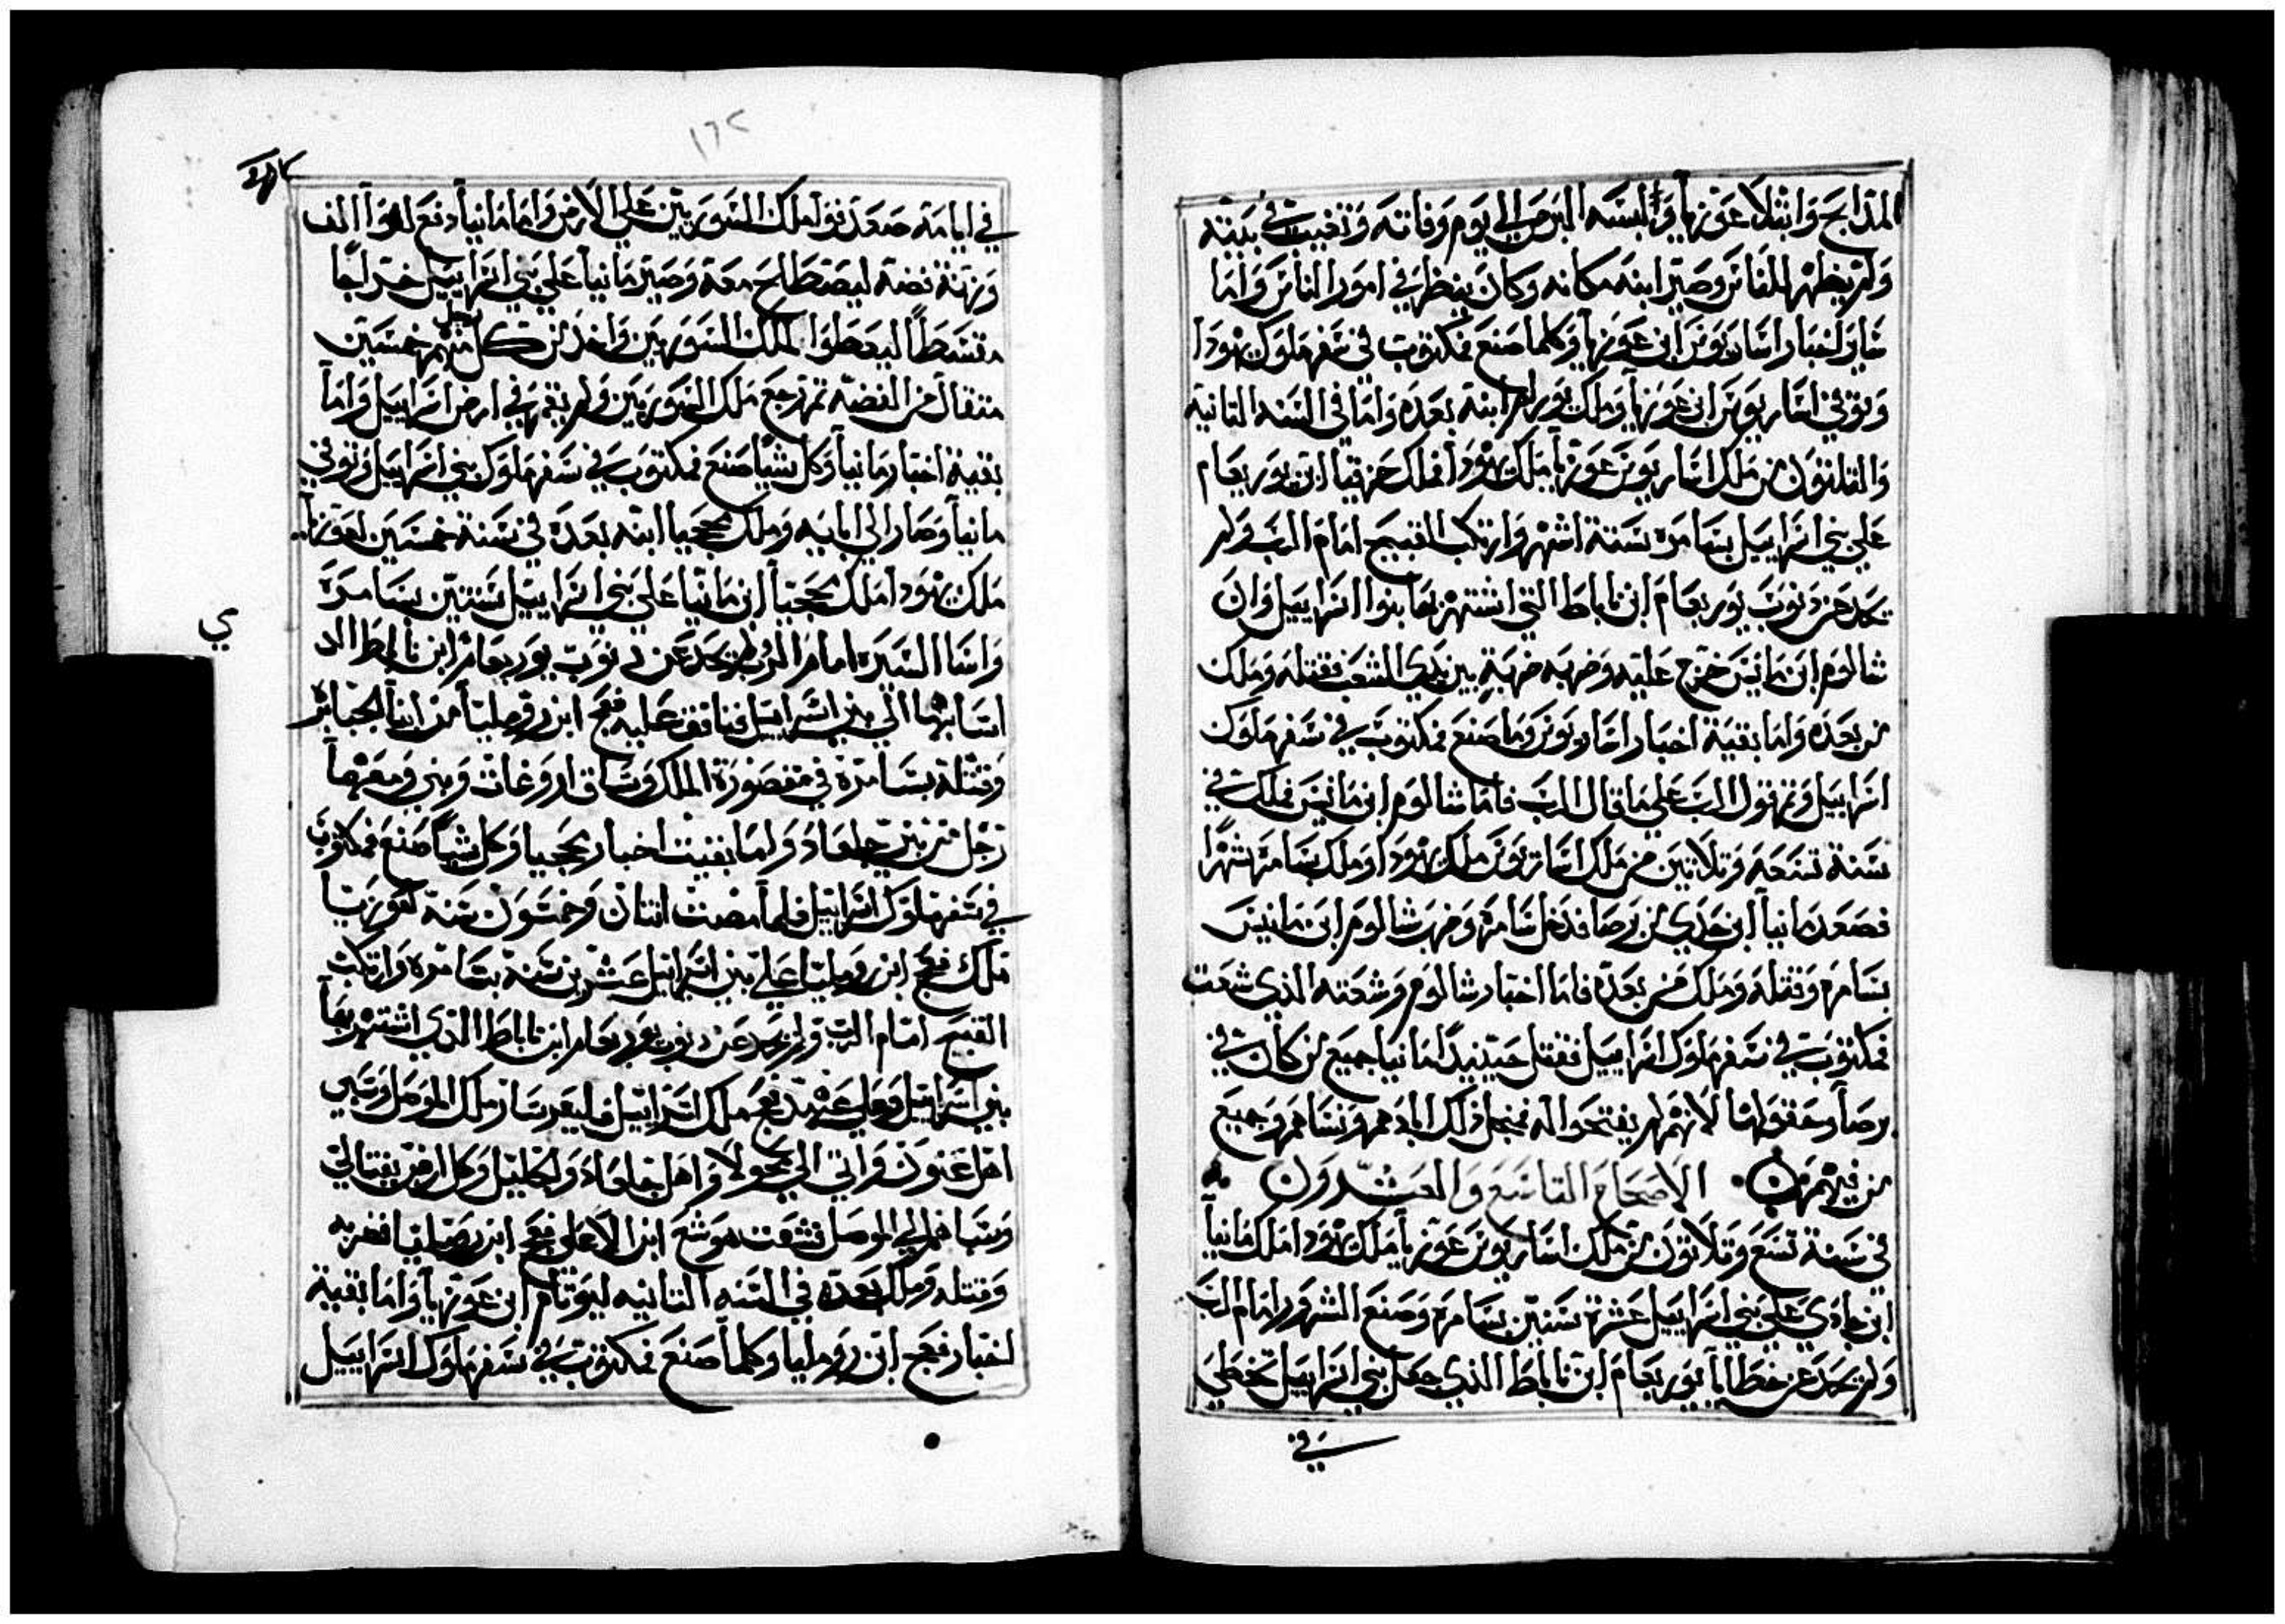 المذابح وابتلا عوزيا والبسه البرص الي يوم وفاته وتغيب في بيته
ولم يظهر للناس وصير ابنه مكانه وكان ينظر في امور الناس واما
ساير اخبار اسار يوس ابن عوزيا وكلما صنع فمكتوب في سفر ملوك يهودا
وتوفي اسار يوس ابن عوزيا وملك يورام ابنه بعده واما في السنه الثانية
والثلثون من ملك اسار يوس عوزيا ملك يهودا فملك حزقيا ابن يوربعام
علي بني اسراييل بسامره ستة اشهر وارتكب القبيح امام الرب ولم
يحد عن دنوب يوربعام ابن ناباط التي اشتهر بها بنوا اسراييل وان
شالوم ابن مانيس خرج عليه وضربه ضربة بين يدي الشعب فقتله وملك
من بعده واما بقية اخبار اسار يوس وما صنع فمكتوب في سفر ملوك
اسراييل وتم قول الرب علي ما قال الرب فاما شالوم ابن مانيس فملك في
سنة تسعه وتلاتين من ملك اسار يوس ملك يهودا وملك بسامره شهرا
فصعد مانيا ابن جدي من برصا فدخل سامره وضرب شالوم ابن مانيس
بسامره وقتله وملك من بعده فاما اخبار شالوم وشعته الذي شعت
فمكتوب في سفر ملوك اسراييل فقتل حينيدا مانيا جميع من كان في
برصا وحقولها لانهم لم يفتحوا له فمنجل ذلك ابادهم ونساهم وجميع
من فيهم الاصحاح التاسع والعشرون
في سنة تسع وتلاتون من ملك اسار يوس عوزيا ملك يهودا ملك مانيا
ابن جادي علي بني اسراييل عشرة سنين بسامره وصنع الشرور امام الرب
ولم يحد عن خطايا يوربعام ابن ناباط الذي جعل بني اسراييل تخطي
في
١٦٢
في ايامه صعد فوا ملك السوريين علي الارض واما مانيا دفع لفوا الف
وزنة فضة ليصطلح معه وصير مانيا علي بني اسراييل خراجا
مقسطا ليعطوا لملك السوريين واخذ من كل رجل منهم خمسين
متقال من الفضه تم رجع ملك السوريين ولم يقم في ارض اسراييل واما
بقية اخبار مانيا وكل شيا صنع فمكتوب في سفر ملوك بني اسراييل وتوفي
مانيا وصار الي ابايه وملك بحجيا ابنه بعده في سنة خمسين لعوزيا
ملك يهودا ملك بحجيا ابن مانيا علي بني اسراييل سنتين بسامرة
واسا السيرة امام الرب ولم يحد عن دنوب يوربعام ابن ناباط الد
اسابها الي بني اسراييل فنافق عليه فقح ابن روملیا من ابنا الجبابر
وقتله بسامرة في مقصورة الملك وساق اروغات ومني ومعهما
رجل من بني جلعاد واما بقيت اخبار بحجيا وكل شيا صنع فمكتوب
في سفر ملوك اسراييل فلما مضت اتنان وخمسون سنه لعوزيا
ملك فقح ابن روملیا علي بني اسراييل عشرين سنة بسامره وارتكب
القبيح امام الرب ولم يحد عن دنوب يوربعام ابن ناباط الذي اشتهر بها
بني اسراييل وعلي عهد فقح ملك اسراييل فليعرسار ملك الموصل وسبي
اهل عنون واتي الي بحولا واهل جلعاد والجليل وكل ارض يفتالي
وسباهم الي الموصل فشغب هوشع ابن الا علي فقح ابن روملیا فضربه
وقتله وملك بعده في السنه التانيه ليوتام ابن عوزيا واما بقية
اخبار فقح ابن روملیا وكلما صنع فمكتوب في سفر ملوك اسراييل